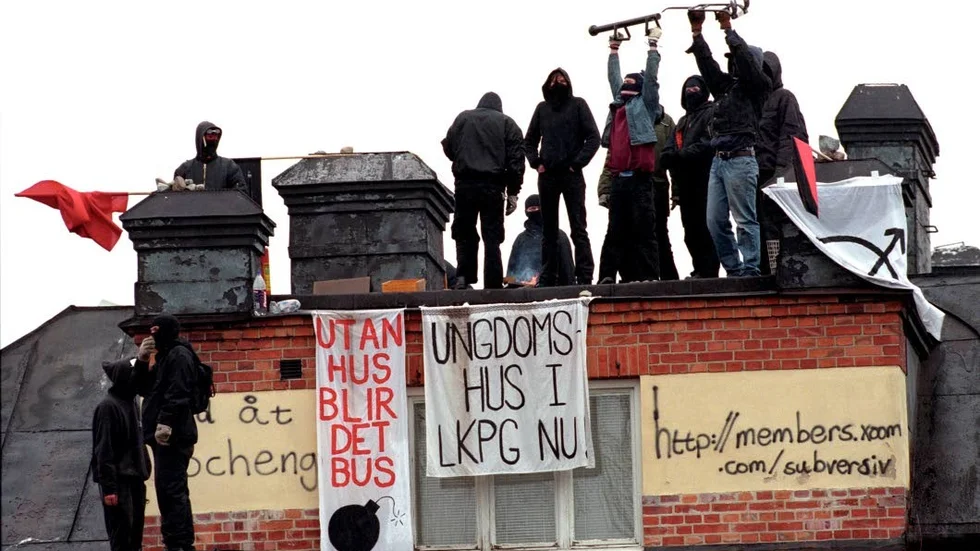 UTAN
HUS
BLIR
DET
BUS
UNGDOMS-
HUS I
LKPG NU!
åt
http://members.xoom
.com/subversiv